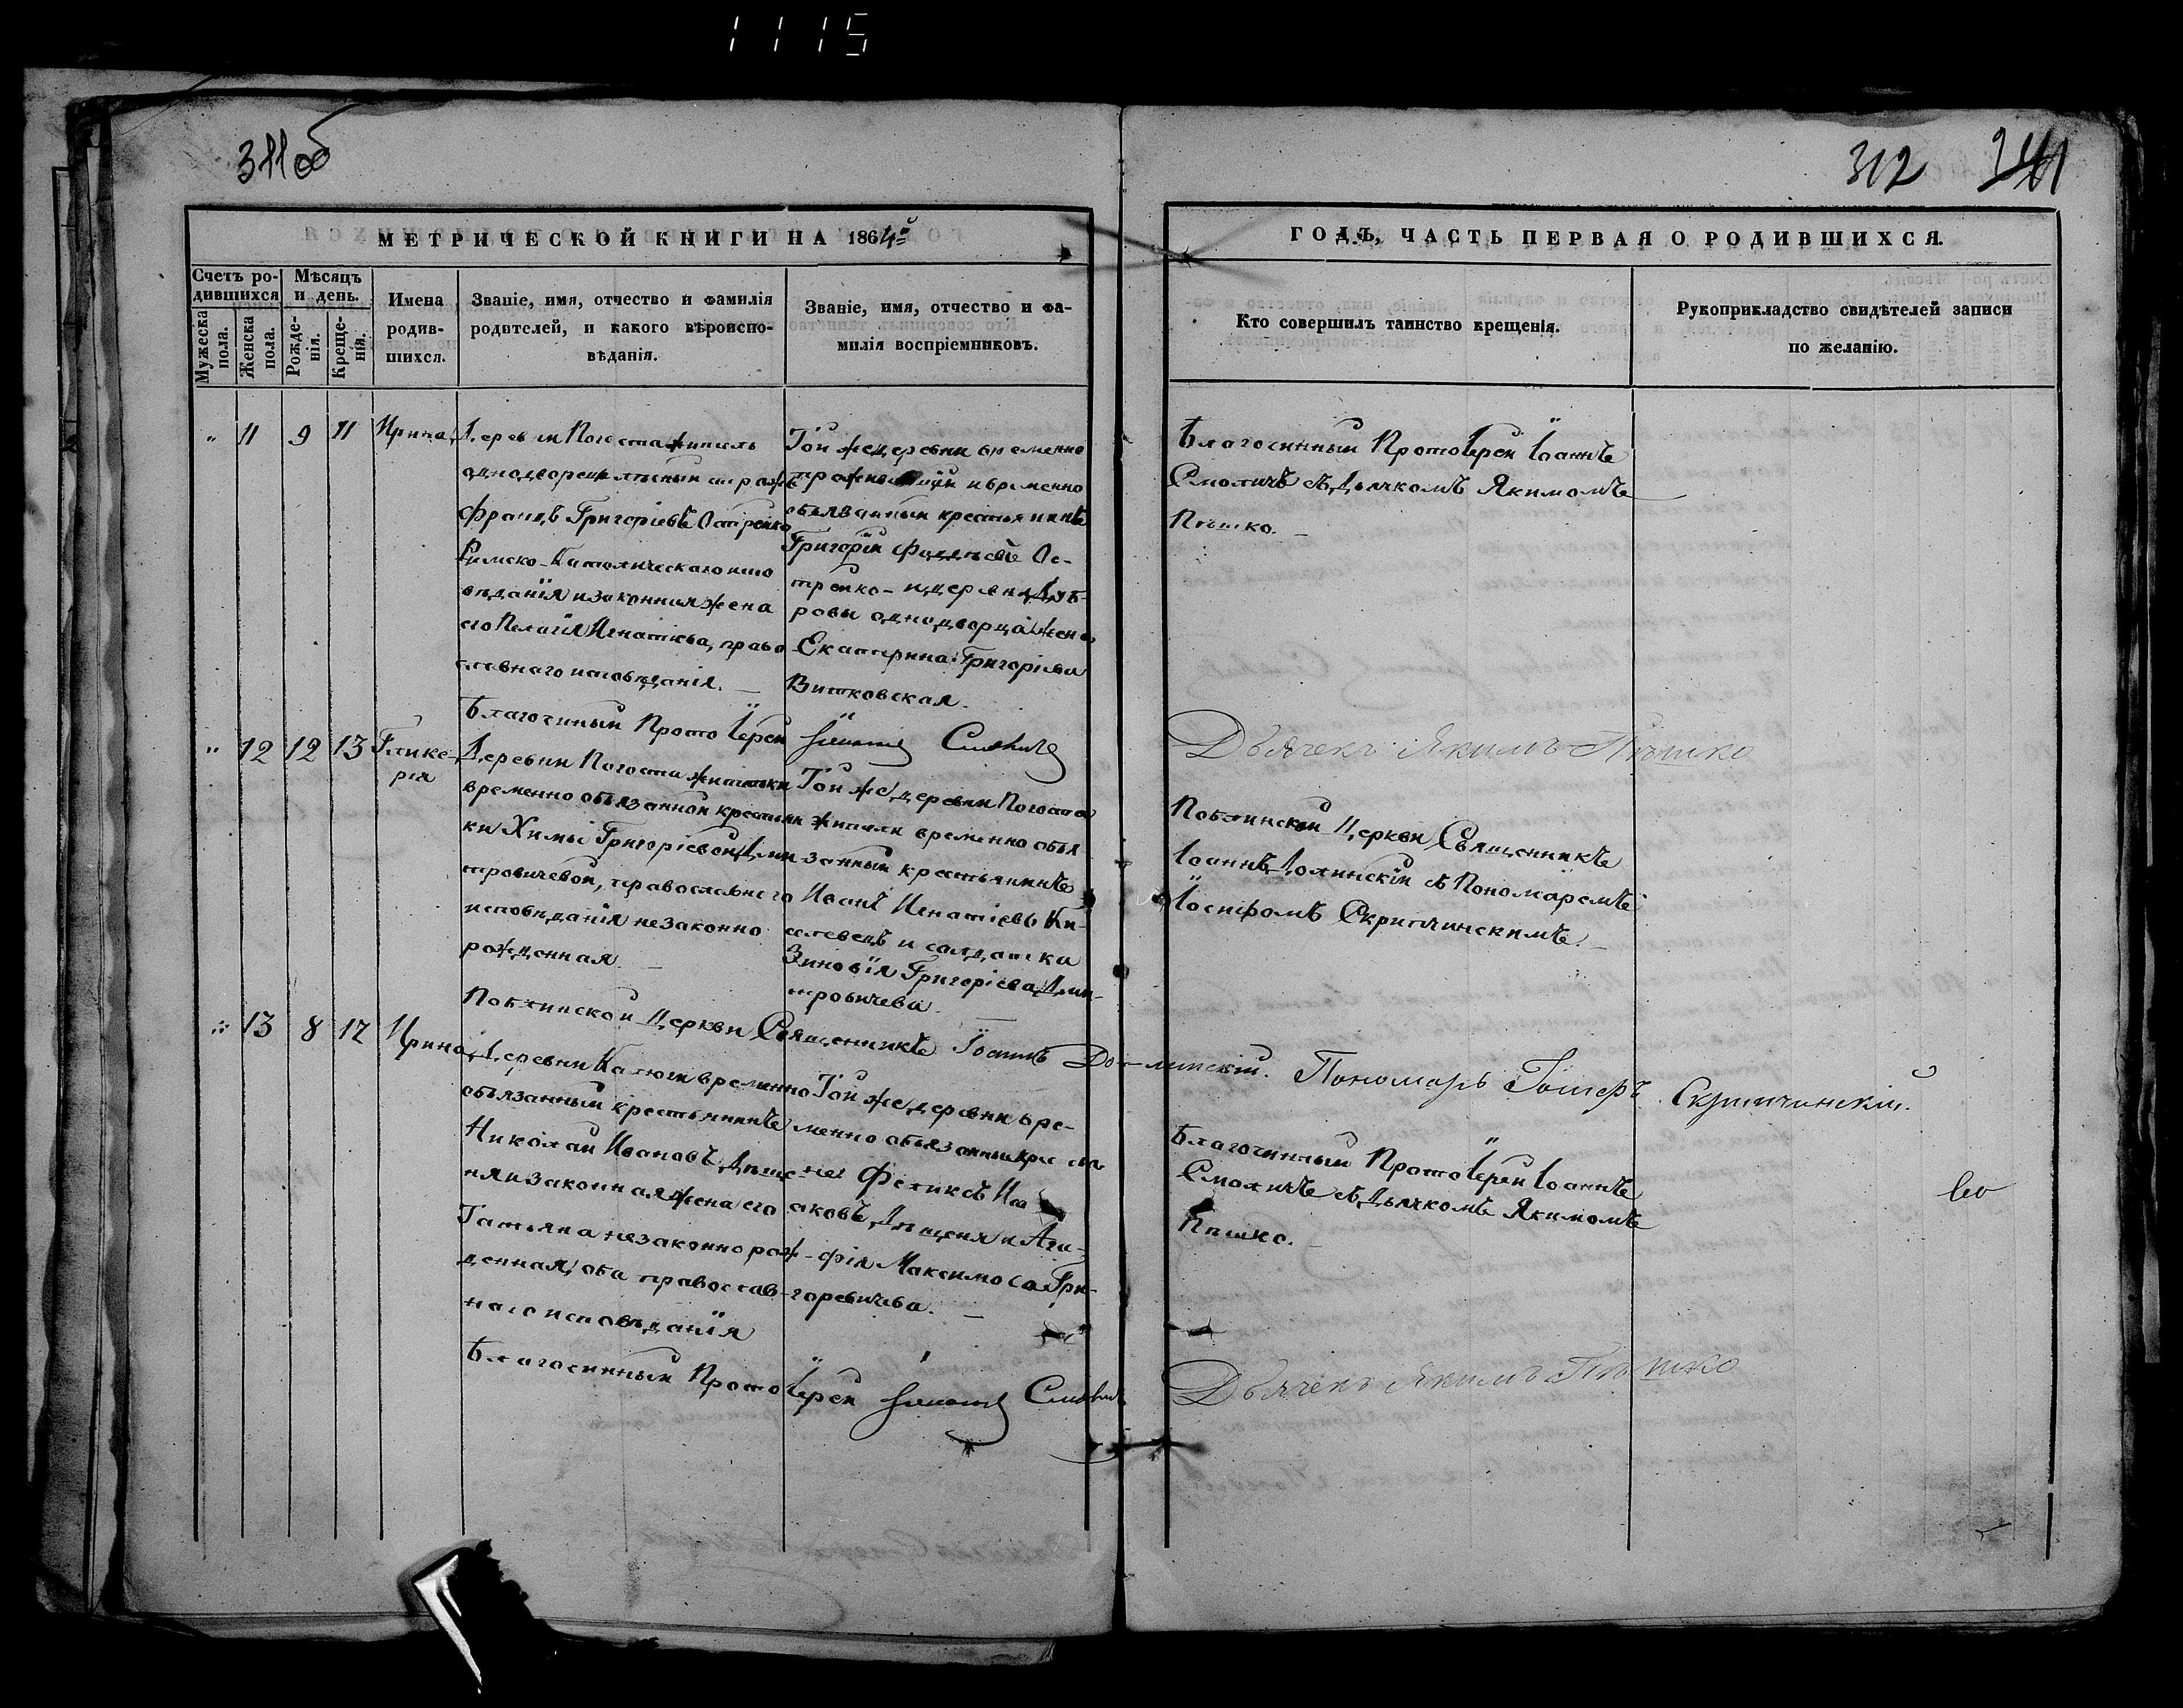 1115
311об
312
МЕТРИЧЕСКОЙ КНИГИ НА 1864й
ГОДЪ, ЧАСТЬ ПЕРВАЯ О РОДИВШИХСЯ.
Счетъ ро-
дившихся
Мѣсяцъ
и день.
Мужеска
пола.
Женска
пола.
Рожде-
нія.
Креще-
нія.
Имена
родив-
шихся.
Званіе, имя, отчество и фамилія
родителей, и какого вѣроиспо-
вѣданія.
Званіе, имя, отчество и фа-
милія воспріемниковъ.
Кто совершилъ таинство крещенія.
Рукоприкладство свидѣтелей записи
по желанію.
" 11 9 11 Ирина
Деревни Погоста житель
однодворецъ
Францъ Григоріевъ Острейко
Римско-Католическаго испо
вѣданія и законная жена
его Пелагія Игнатіева, право
славнаго исповѣданія.
Той же деревни временно
и временно
обязанный крестьянинъ
Григорій Фадѣевъ Ос-
трейко - и деревни Дуб-
ровы однодворца жена
Екатерина Григоріева
Витковская.
Благочинный Протоіерей Іоаннъ
Смоличъ съ Дьячкомъ Якимомъ
Пѣшко.
Благочинный Протоіерей Іоаннъ Смоличъ
Дьячекъ Якимъ Пѣшко
" 12 12 13 Глике-
рія
Деревни Погоста жительки
временно обязанной крестьян
ки Химы Григоріевой Дми
тровичевой, православнаго
исповѣданія незаконно
рожденная.
Той же деревни Погоста
житель временно обя
занный крестьянинъ
Иванъ Игнатіевъ Ки-
селевецъ и салдатка
Зиновія Григоріева Дми-
тровичева.
Поблинской Церкви Священникъ
Іоаннъ Долинскій съ Пономаремъ
Іосифомъ Скрипчинскимъ.
Поблинской Церкви Священникъ Іоаннъ Долинскій. Пономарь Іосифъ Скрипчинскій.
" 13 8 17 Ирина
Деревни Калюги временно
обязанный крестьянинъ
Николай Ивановъ Дыще-
ня и законная жена его
Татьяна незаконно рож-
денная, оба православ-
наго исповѣданія
Той же деревни вре-
менно обязанный крестья
нинъ Феликсъ Иса
аковъ Дыщеня и Ага-
фія Максимова Гри-
горевичева.
Благочинный Протоіерей Іоаннъ
Смоличъ съ Дьячкомъ Якимомъ
Пѣшко.
Благочинный Протоіерей Іоаннъ Смоличъ
Дьячекъ Якимъ Пѣшко